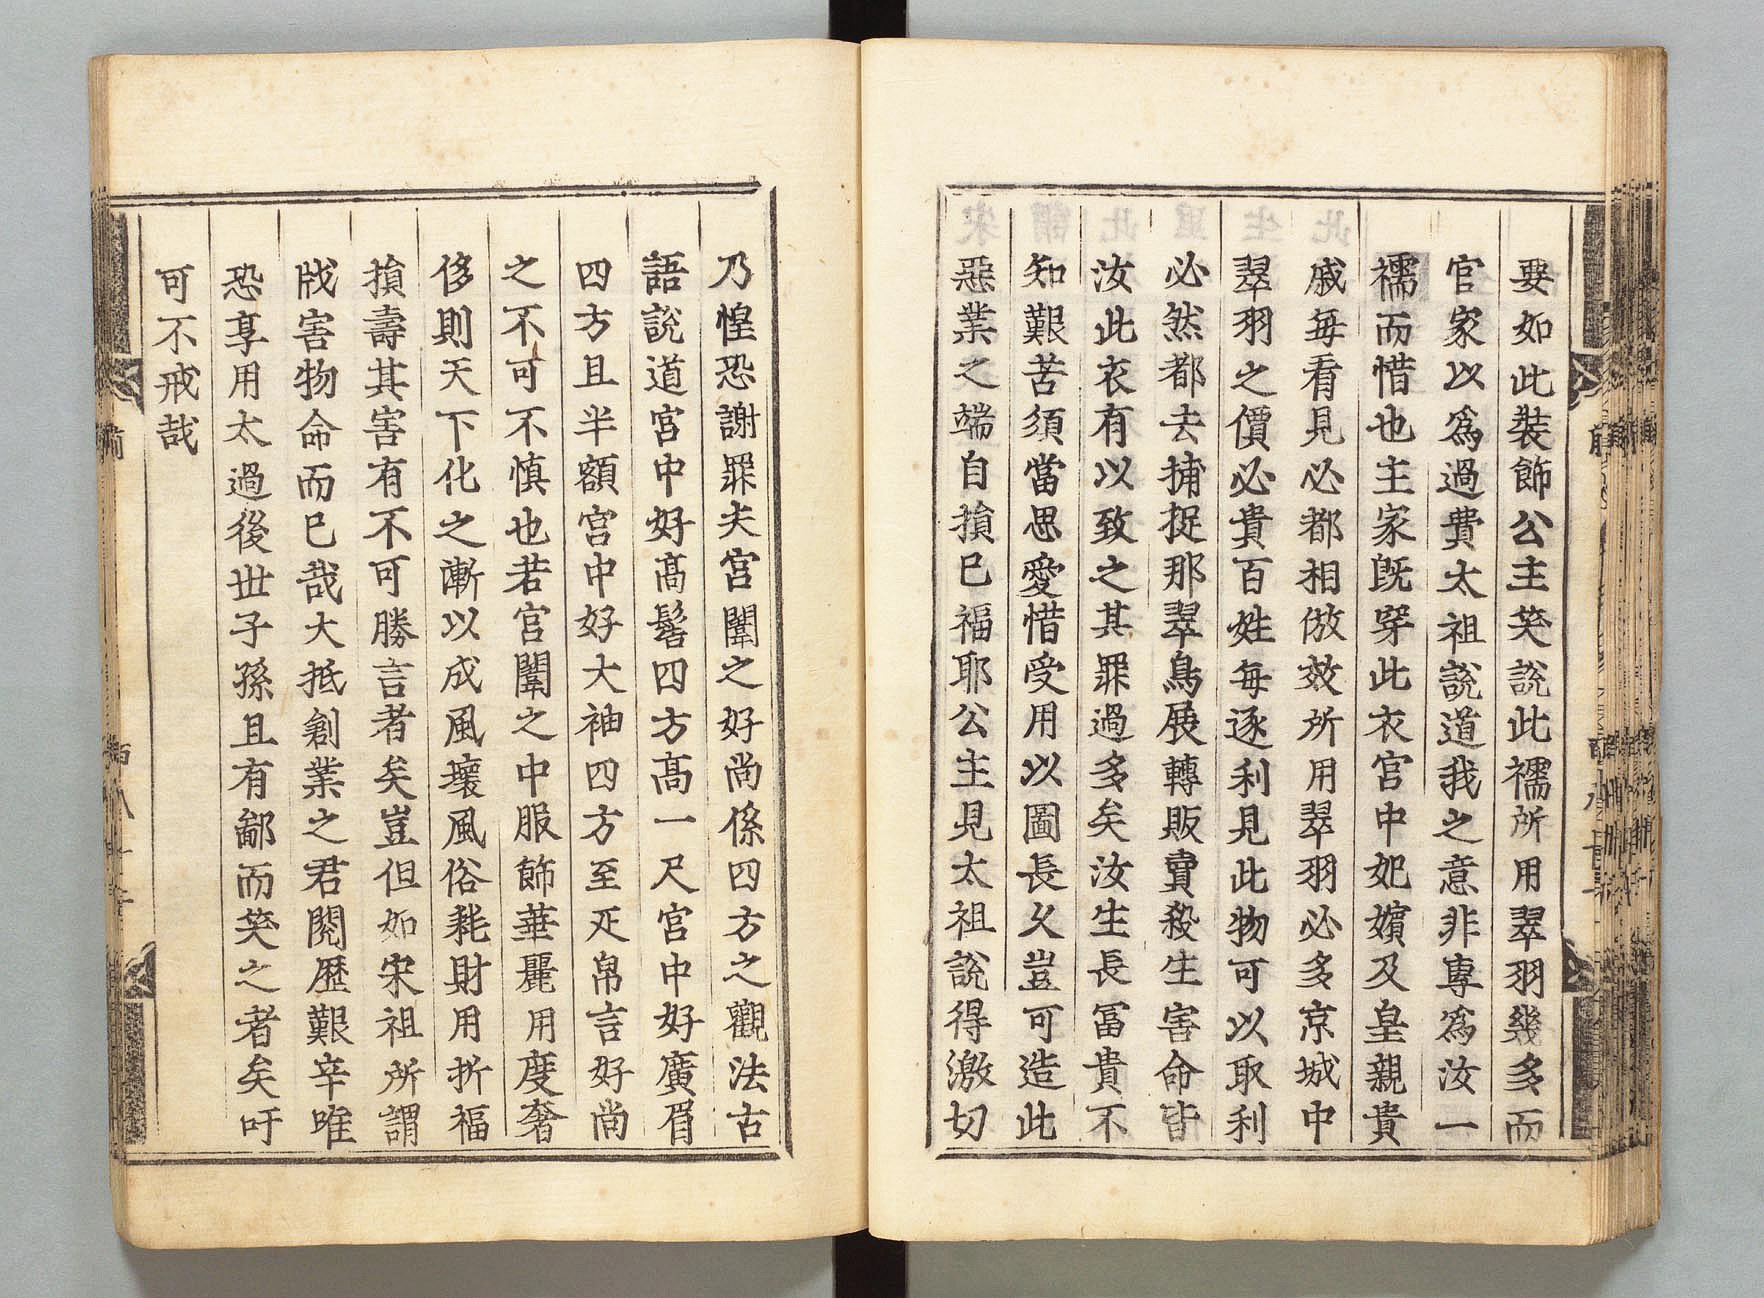 要如此裝飾公主笑說此襦所用翠羽幾多而
官家以爲過費太祖說道我之意非專爲汝一
襦而惜也主家旣穿此衣宮中妃嬪及皇親貴
戚每看見必都相倣效所用翠羽必多京城中
翠羽之價必貴百姓每逐利見此物可以取利
必然都去捕捉那翠鳥展轉販賣殺生害命皆
汝此衣有以致之其罪過多矣汝生長富貴不
知艱苦須當思愛惜受用以圖長久豈可造此
惡業之端自損已福耶公主見太祖說得激切
乃惶恐謝罪夫宮闈之好尚係四方之觀法古
語說道宮中好高髻四方高一尺宮中好廣眉
四方且半額宮中好大袖四方至疋帛言好尚
之不可不愼也若宮闈之中服飾華麗用度奢
侈則天下化之漸以成風壞風俗耗財用折福
損壽其害有不可勝言者矣豈但如宋祖所謂
戕害物命而已哉大抵創業之君閱歷艱辛唯
恐享用太過後世子孫且有鄙而笑之者矣吁
可不戒哉